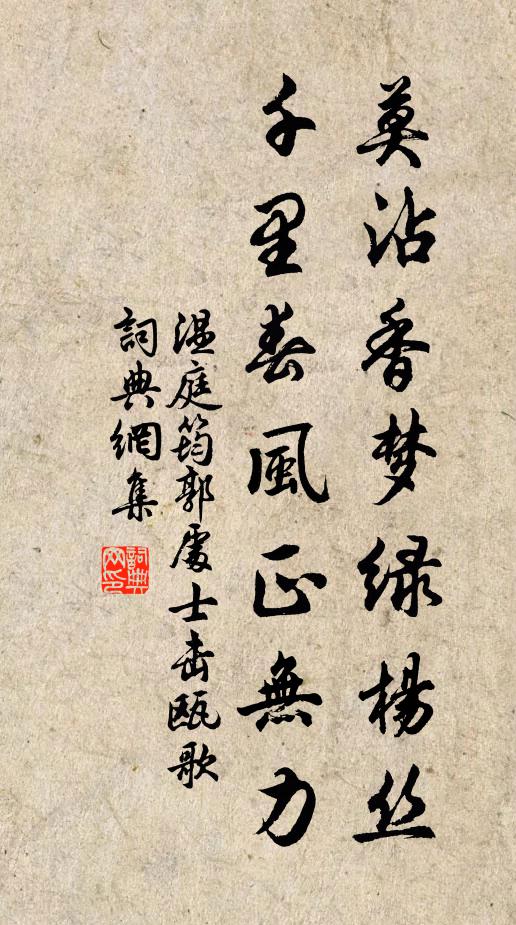 莫沾香梦绿楊丝
千里春風正無力
温庭筠郭處士击瓯歌
詞典網集
詞典
网印